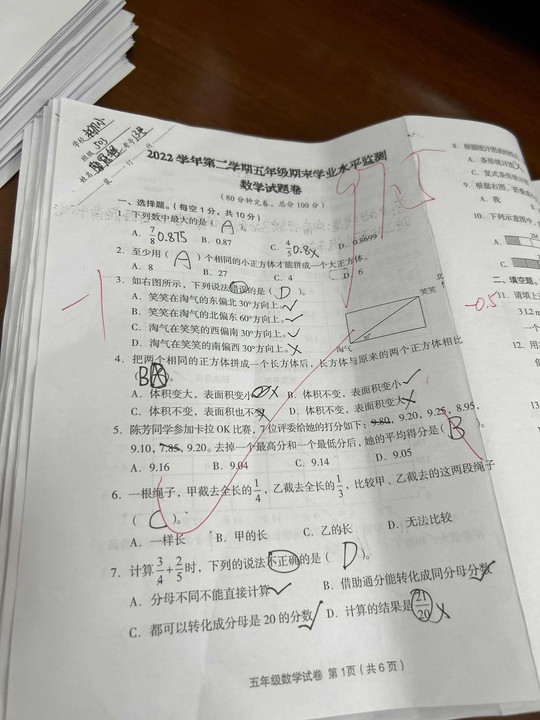 学校
班级 503
姓名
考号 13号
装 订 线
2022 学年第二学期五年级期末学业水平监测
数学试题卷
97.5
(80 分钟完卷，总分 100 分)
一、选择题。(每空 1 分，共 10 分)
1. 下列数中最大的是( A )。
A. 7/8 0.875 B. 0.87 C. 4/5 0.8 D. 0.8699
2. 至少用( A )个相同的小正方体才能拼成一个大正方体。
A. 8 B. 27 C. 4 D. 6
-1
3. 如右图所示，下列说法错误的是( D )。
A. 笑笑在淘气的东偏北 30°方向上。
B. 笑笑在淘气的北偏东 60°方向上。
C. 淘气在笑笑的西偏南 30°方向上。
D. 淘气在笑笑的南偏西 30°方向上。
北
笑笑
淘气 30°
4. 把两个相同的正方体拼成一个长方体后，长方体与原来的两个正方体相比
( B )。
A. 体积变大，表面积变小 B. 体积不变，表面积变小
C. 体积不变，表面积也不变 D. 体积不变，表面积变大
5. 陈芳同学参加卡拉 OK 比赛，7 位评委给她的打分如下：9.80，9.20，9.25，8.95，
9.10，7.85，9.20。去掉一个最高分和一个最低分后，她的平均得分是( B )
A. 9.16 B. 9.04 C. 9.14 D. 9.05
6. 一根绳子，甲截去全长的1/4，乙截去全长的1/3，比较甲、乙截去的这两段绳子
( C )。
A. 一样长 B. 甲的长 C. 乙的长 D. 无法比较
7. 计算3/4+2/5时，下列的说法不正确的是( D )。
A. 分母不同不能直接计算 B. 借助通分能转化成同分母分数
C. 都可以转化成分母是 20 的分数 D. 计算的结果是21/20
五年级数学试卷 第 1 页（共 6 页）
8. 根据统计图表的特点
A. 条形统计图
C. 复式条形统计图
9. 根据右图，折叠成
A. 我
10. 下列示意图中，
A.
C.
二、填空题。
-0.5
11. 请填上
3 L2 m
一个
12. 用